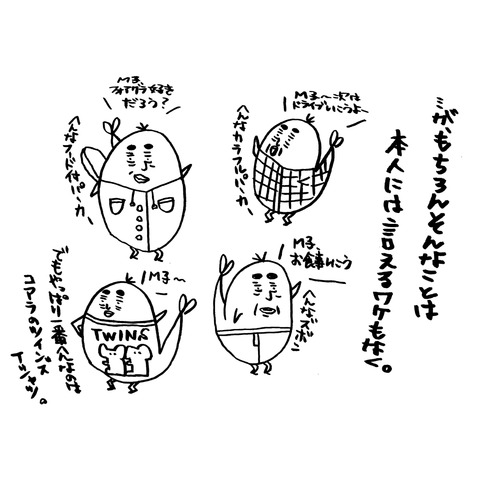 が、もちろんそんなことは
本人には言えるワケもなく。
M子〜次は
ドライブいこうよ〜
へんなカラフルパーカー
M子、
フォアグラ好き
だろう？
へんなフード付パーカー
M子、
お食事いこう
へんなズボン
M子〜
TWINS
でもやっぱり一番へんなのは
コアラのツインズ
Tシャツ。